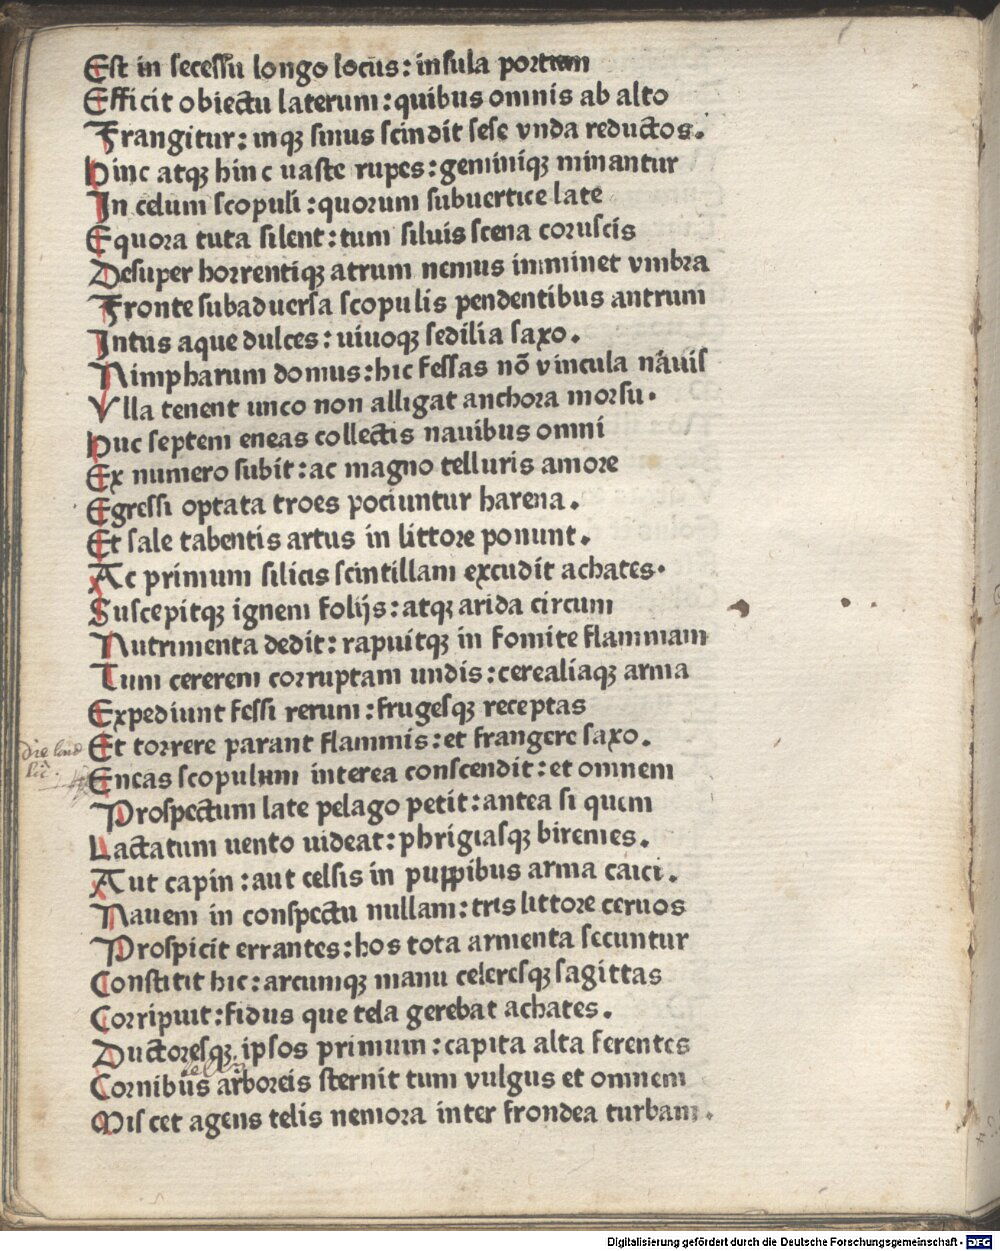 Est in secessu longo locus: insula portum
Efficit obiectu laterum: quibus omnis ab alto
Frangitur: inqꝫ sinus scindit sese vnda reductos.
hinc atqꝫ hinc uaste rupes: geminiqꝫ minantur
In celum scopuli: quorum subuertice late
Equora tuta silent: tum siluis scena coruscis
Desuper horrentiqꝫ atrum nemus imminet vmbra
Fronte subaduersa scopulis pendentibus antrum
Intus aque dulces: uiuoqꝫ sedilia saxo.
Nimpharum domus: hic fessas nō vincula nauis
Vlla tenent unco non alligat anchora morsu.
huc septem eneas collectis nauibus omni
Ex numero subit: ac magno telluris amore
Egressi optata troes pociuntur harena.
Et sale tabentis artus in littore ponunt.
Ac primum silicis scintillam excudit achates.
Suscepitqꝫ ignem folijs: atqꝫ arida circum
Nutrimenta dedit: rapuitqꝫ in fomite flammam
Tum cererem corruptam undis: cerealiaqꝫ arma
Expediunt fessi rerum: frugesqꝫ receptas
Et torrere parant flammis: et frangere saxo.
Eneas scopulum interea conscendit: et omnem
Prospectum late pelago petit: antea si quem
Lactatum uento uideat: phrigiasqꝫ biremes.
Aut capin: aut celsis in puppibus arma caici.
Nauem in conspectu nullam: tris littore ceruos
Prospicit errantes: hos tota armenta secuntur
Constitit hic: arcumqꝫ manu celeresqꝫ sagittas
Corripuit: fidus que tela gerebat achates.
Ductoresqꝫ ipsos primum: capita alta ferentes
Cornibus arboreis sternit tum vulgus et omnem
Miscet agens telis nemora inter frondea turbam.
Digitalisierung gefördert durch die Deutsche Forschungsgemeinschaft - DFG